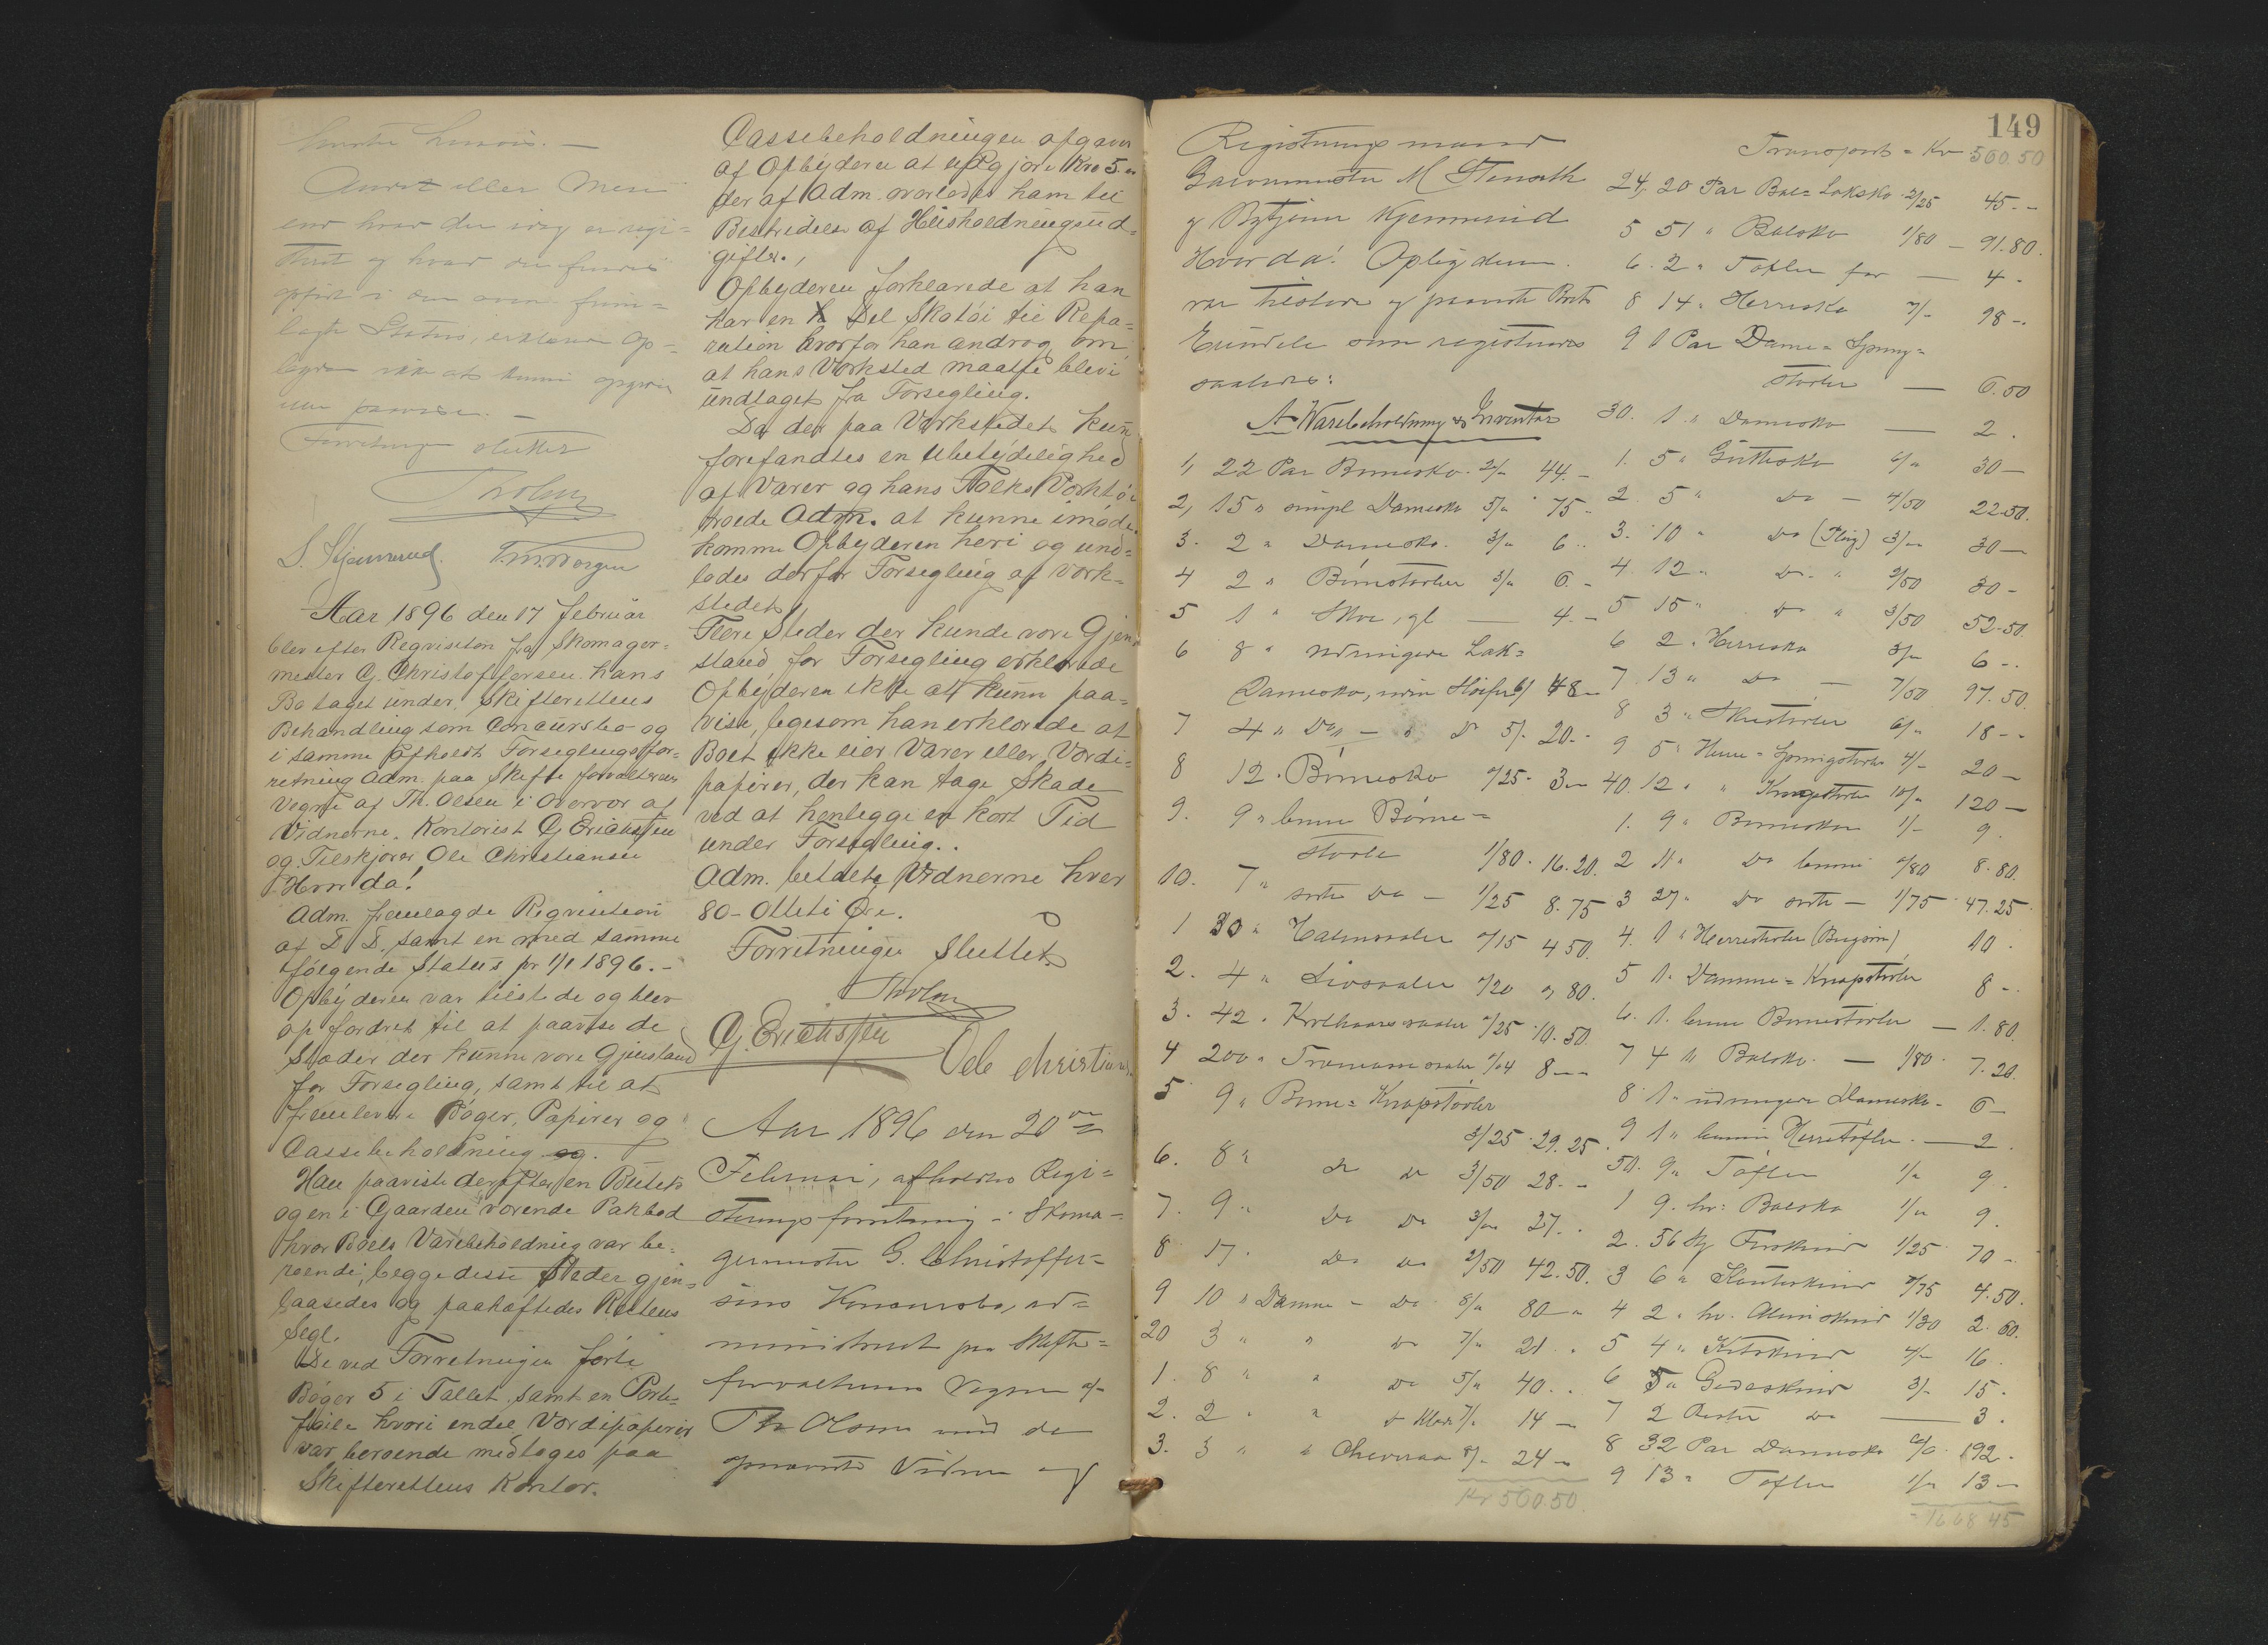 Andet eller Mere
end hvad der idag er regi=
streret og hvad der findes
opført i den
lagte Status, erklærer Op=
byderen ikke at kunne opgive
eller paavise. —
Forretningen sluttet
ThOlsen
Aar 1896 den 17 Februar
blev efter Reqvisition fra Skomager=
mester G. Christoffersen hans
Bo taget under Skifterettens
Behandling som Concursbo og
i samme afholdt Forseglingsfor=
retning Adm. paa Skifteforvalterens
Vegne af Th. Olsen i Overvær af
Vidnerne. Kontorist G Erichssen
og Tilskjærer Ole Christiansen
Hvorda!
Adm. fremlagde Reqvisition
af D. D. samt en med samme
følgende Status pr 1/1 1896. —
Opbyderen var tilstede og blev
opfordret til at paavise de
Steder der kunne være Gjenstand
for Forsegling, samt til at
fremlevere Bøger, Papirer og
Cassebeholdning og.
Han paaviste derefter en Butik
og en i Gaarden værende Pakbod
hvor Boets Varebeholdning var be=
roende, begge disse Steder gjen=
laasedes og paahæftedes Rettens
Segl.
De ved Forretningen førte
Bøger 5 i Tallet samt en Porte=
føile hvori endel Værdipapirer
var beroende medtoges paa
Skifterettens Kontor.
Cassebeholdningen opgaves
af Opbyderen at udgjøre Kro 5.
der af Adm. overlodes ham til
Bestridelse af Husholdningsud=
gifter.
Opbyderen forklarede at han
har en Del Skotøi til Repa=
ration hvorfor han androg om
at hans Værksted maatte blive
undtaget fra Forsegling.
Da der paa Værkstedet kun
forefandtes en Ubetydelighed
af Varer og hans Folks Værktøi
troede Adm. at kunne imøde=
komme Opbyderen heri og und=
lades derfor Forsegling af Værk=
stedet.
Flere Steder der kunde være Gjen=
stand for Forsegling erklærede
Opbyderen ikke at kunne paa=
vise, ligesom han erklærede at
Boet ikke eier Varer eller Værdi=
papirer, der kan tage Skade
ved at henlegge en kort Tid
under Forsegling..
Adm. betalte Vidnerne hver
80 - Otteti Øre.
Forretningen Sluttet.
ThOlsen
G. Erichssen
Ole Christiansen
Aar 1896 den 20de
Februar, afholdtes Regi=
streringsforretning i Skoma=
germester G. Christoffer=
sens Konkursbo, ad=
ministreret paa Skifte=
forvalterens Vegne af
Th Olsen med de
opnævnte Vidner og
149
Registreringsmænd
Garvermester M
og Bytjener Kjennerud
Hvorda! Opbyderen
var tilstede og paaviste Boets
Eiendele som registreredes
saaledes:
A. Varebeholdning & Inventar
1, 22 Par Børnesko 2/" 44. -
2, 15 " simpl Damesko 5/" 75 -
3. 2 " Damesko. 3/" 6 ..
4 2 " Børnestøvler 3/" 6 -
5 1 " Skoe, gl — 4. -
6 8 " udringede Lak=
Damesko, 6/ 48 -
7 4 " Do - " Do 5/- 20. -
8 12 " Børnesko "/25 - 3 -
9. 9 " brune Børne=
støvle 1/80 - 16.20.
10. 7 " sorte Do - 1/25 8.75
1 30 " Halmsaaler "/15 4 50.
2. 4 " "/20 " 80.
3. 42 " Krølhaarssaaler "/25 10.50.
4 200 " "/04 8 --
5 9 " Børne=Knapstøvler
3/25 29.25.
6. 8 " do do 3/50 28 - -
7. 9 " Do Do 3/" 27. .
8 17 " Do Do 2/50 42.50.
9 10 " Damme - Do 8/" 80 "
20 3 " " Do 7/" 21 .
1. 8 " " Do 5/" 40. .
2. 2 " " Do Klæde 7/" 14 -
3. 3 " " Chevreau 8/- 24 -
Kr 560.50.
Transport = Kr 560.50
24, 20 Par Bal=Laksko 2/25 45. -
5 51 " Balsko 1/80 - 91.80.
6. 2 " Tøfler for — 4 -
8 14 " Herresko 7/- 98 -.
9 1 Par Dame=Spring=
støvler — 6.50
30. 1 " Damesko — 2.
1. 5 " Guttesko 6/" 30 -
2. 5 " Do - 4/50 22.50.
3. 10 " Do (Pløg) 3/" 30 -
4. 12 " Do " 2/50 30 -
5 15 " Do " 3/50 52.50.
6 2 " Herresko 3/" 6 -.
7 13 " Do - 7/50 97.50.
8 3 " 6/" 18 - -
9 5 " Herre=Springstøvler 4/- 20 -
40. 12 " " Knapstøvler 10/" 120 -
1. 9 " Børnesko 1/- 9.
2 11 " Do brune "/80 8.80.
3 27 " Do sorte - 1/75 47.25
4. 1 " Herrestøvler 10 .
5 1 " Damme=Knapstøvler 8 -.
6. 1 " brune Børnestøvler — 1.80.
7 4 " Balsko — 1/80 7.20.
8 1 " udringede Damesko - 6 -
9 1 " brune Herretøfler — 2
50. 9 " Tøfler 1/" 9.
1 9. hv: Balsko 1/" 9.
2. 56 1/25 70 -
3 6 " "/75 4.50.
4 2 " hv. 1/30 2.60.
5 4 " 4/- 16.
6 5 " Gedeskind 3/- 15.
7 2 Rester do — 3.
8 32 Par Damesko 6/" 192.
9 13 " Tøfler 1/" 13 -
1668 45